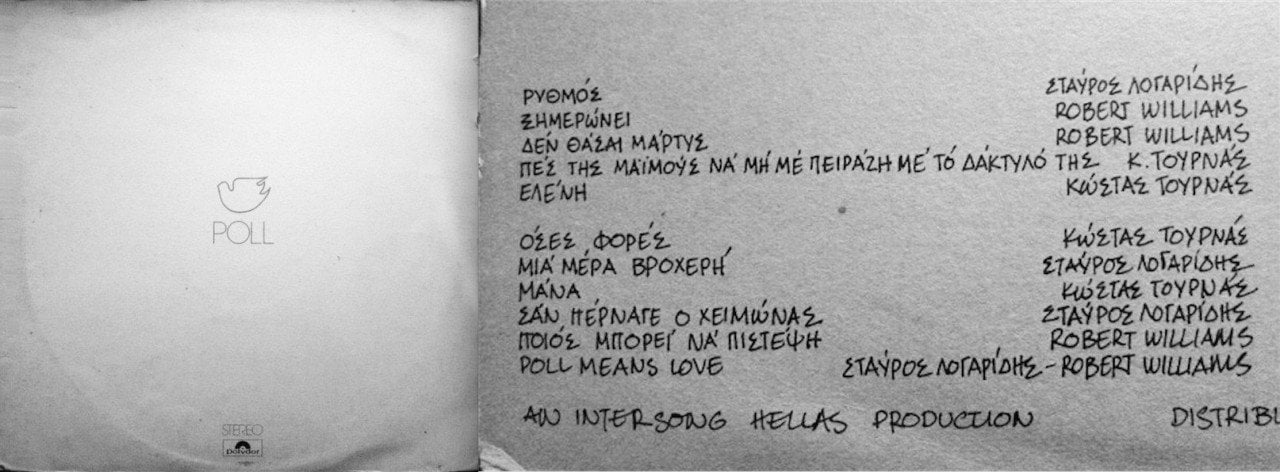 POLL
STEREO
Polydor
ΡΥΘΜΟΣ ΣΤΑΎΡΟΣ ΛΟΓΑΡΊΔΗΣ
ΞΗΜΕΡΏΝΕΙ ROBERT WILLIAMS
ΔΕΝ ΘΆΣΑΙ ΜΆΡΤΥΣ ROBERT WILLIAMS
ΠΈΣ ΤΗΣ ΜΑΪΜΟΎΣ ΝΆ ΜΉ ΜΈ ΠΕΙΡΆΖΗ ΜΈ ΤΌ ΔΆΚΤΥΛΌ ΤΗΣ Κ. ΤΟΥΡΝΆΣ
ΕΛΈΝΗ ΚΏΣΤΑΣ ΤΟΥΡΝΆΣ
ΌΣΕΣ ΦΟΡΈΣ ΚΏΣΤΑΣ ΤΟΥΡΝΆΣ
ΜΙΆ ΜΈΡΑ ΒΡΟΧΕΡΉ ΣΤΑΎΡΟΣ ΛΟΓΑΡΊΔΗΣ
ΜΆΝΑ ΚΏΣΤΑΣ ΤΟΥΡΝΆΣ
ΣΆΝ ΠΈΡΝΑΓΕ Ο ΧΕΙΜΏΝΑΣ ΣΤΑΎΡΟΣ ΛΟΓΑΡΊΔΗΣ
ΠΟΙΌΣ ΜΠΟΡΕΊ ΝΆ ΠΙΣΤΈΨΗ ROBERT WILLIAMS
POLL MEANS LOVE ΣΤΑΎΡΟΣ ΛΟΓΑΡΊΔΗΣ - ROBERT WILLIAMS
AN INTERSONG HELLAS PRODUCTION DISTRIBU